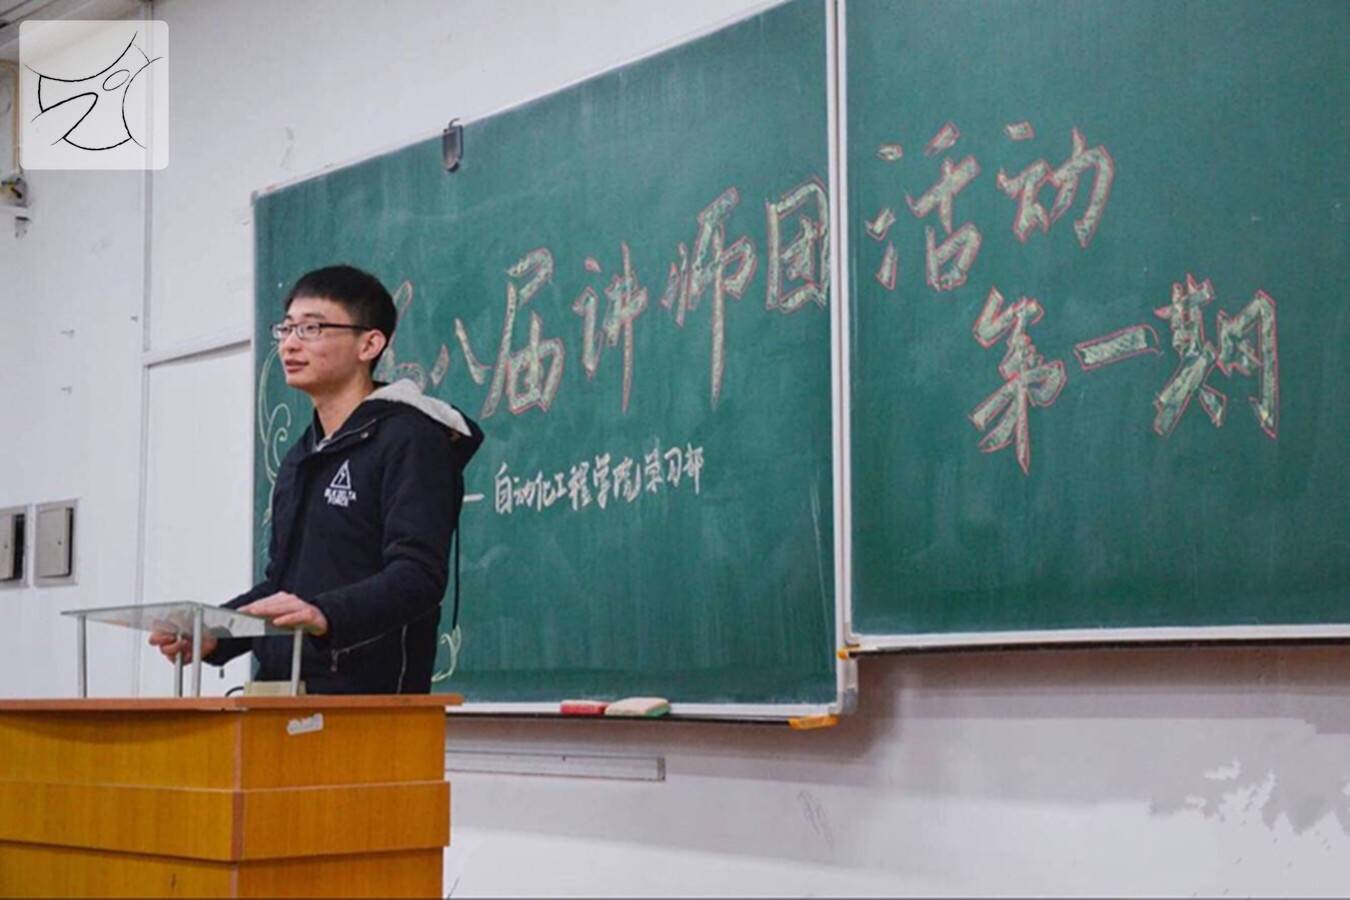 第八届讲师团活动
第一期
—自动化工程学院学习部